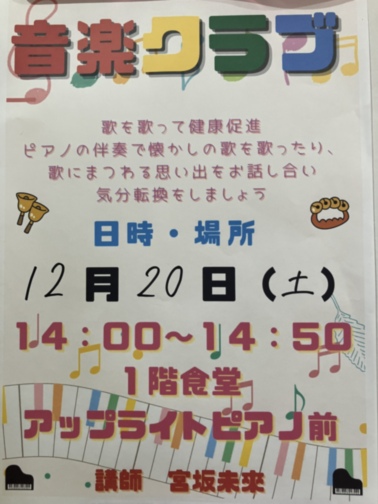 音楽クラブ
歌を歌って健康促進
ピアノの伴奏で懐かしの歌を歌ったり、
歌にまつわる思い出をお話し合い
気分転換をしましょう
日時・場所
12月20日(土)
14:00～14:50
1階食堂
アップライトピアノ前
講師 宮坂未來